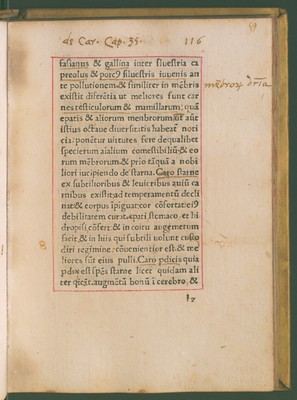 de Car. Cap. 35. 116
59
fasianus & gallina inter siluestria ca
preolus & porcꝰ siluestris iuuenis an
te pollutionem. & similiter in mēbris
existit differētia ut meliores sunt car
nes testiculorum & mamillarum: quā
membrorꝝ dr̄īa
epatis & aliorum menbrorum. ut aūt
istius octaue diuersitatis habeat̄ noti
cia: ponūtur uirtutes fere dequalibet
specierum aīalium comestibiliū. & eo
rum mēbrorum. & prio tāquā a nobi
liori incipiendo de starna. Caro starne
ex subtilioribus & leuioribus auiū car
nibus existit: ad temperamentū decli
nat & corpus īpiguat: cor cōfortat: eiꝰ
debilitatem curat. epati, stomaco, et hi
dropisi, cōfert. & in coitu augmetum
facit. & in hiis qui subtili uolunt custo
diri regimine: cōuenientior est. & me
liores sūt eius pulli. Caro pdicis quia
pdix est spēs starne licet quidam ali
ter dicāt. augmētū bonū ī cerebro, &